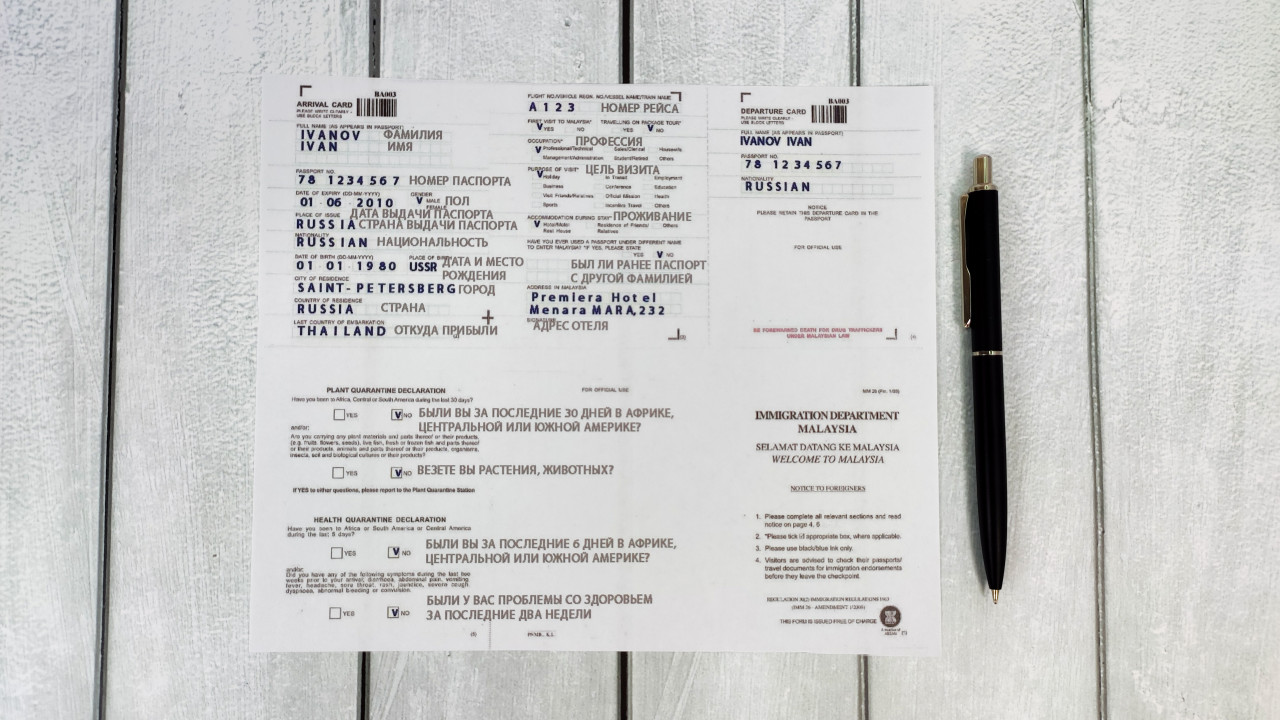 BA003
ARRIVAL CARD
PLEASE WRITE CLEARLY -
USE BLOCK LETTERS
FULL NAME (AS APPEARS IN PASSPORT)
IVANOV ФАМИЛИЯ
IVAN ИМЯ
PASSPORT NO.
78 1234567 НОМЕР ПАСПОРТА
DATE OF EXPIRY (DD-MM-YYYY) GENDER
01 06 2010 V MALE ПОЛ
FEMALE
PLACE OF ISSUE ДАТА ВЫДАЧИ ПАСПОРТА
RUSSIA СТРАНА ВЫДАЧИ ПАСПОРТА
NATIONALITY
RUSSIAN НАЦИОНАЛЬНОСТЬ
DATE OF BIRTH (DD-MM-YYYY) PLACE OF
01 01 1980 USSR ДАТА И МЕСТО
РОЖДЕНИЯ
CITY OF RESIDENCE
SAINT-PETERSBERG ГОРОД
COUNTRY OF RESIDENCE
RUSSIA СТРАНА
LAST COUNTRY OF EMBARKATION
THAILAND ОТКУДА ПРИБЫЛИ
FLIGHT NO./VEHICLE REGN. NO./VESSEL NAME/TRAIN NAME
A123 НОМЕР РЕЙСА
FIRST VISIT TO MALAYSIA* TRAVELLING ON PACKAGE TOUR*
V YES NO YES V NO
OCCUPATION* ПРОФЕССИЯ
V Professional/Technical Sales/Clerical Housewife
Management/Administration Student/Retired Others
PURPOSE OF VISIT* ЦЕЛЬ ВИЗИТА
V Holiday In Transit Employment
Business Conference Education
Visit Friends/Relatives Official Mission Health
Sports Incentive Travel Others
ACCOMMODATION DURING STAY* ПРОЖИВАНИЕ
V Hotel/Motel Residence of Friends/ Others
Rest House Relatives
HAVE YOU EVER USED A PASSPORT UNDER DIFFERENT NAME
TO ENTER MALAYSIA? *IF YES, PLEASE STATE
YES V NO
БЫЛ ЛИ РАНЕЕ ПАСПОРТ
С ДРУГОЙ ФАМИЛИЕЙ
ADDRESS IN MALAYSIA
Premiera Hotel
Menara MARA,232
SIGNATURE
АДРЕС ОТЕЛЯ
BA003
DEPARTURE CARD
PLEASE WRITE CLEARLY -
USE BLOCK LETTERS
FULL NAME (AS APPEARS IN PASSPORT)
IVANOV IVAN
PASSPORT NO.
78 1234567
NATIONALITY
RUSSIAN
NOTICE
PLEASE RETAIN THIS DEPARTURE CARD IN THE
PASSPORT
FOR OFFICIAL USE
BE FOREWARNED DEATH FOR DRUG TRAFFICKERS
UNDER MALAYSIAN LAW
PLANT QUARANTINE DECLARATION
Have you been to Africa, Central or South America during the last 30 days?
YES V NO БЫЛИ ВЫ ЗА ПОСЛЕДНИЕ 30 ДНЕЙ В АФРИКЕ,
ЦЕНТРАЛЬНОЙ ИЛИ ЮЖНОЙ АМЕРИКЕ?
and/or:
Are you carrying any plant materials and parts thereof or their products,
(e.g. fruits, flowers, seeds), live fish, fresh or frozen fish and parts thereof
or their products, animals and parts thereof or their products, organisms,
insects, soil and biological cultures or their products?
YES V NO ВЕЗЕТЕ ВЫ РАСТЕНИЯ, ЖИВОТНЫХ?
If YES to either questions, please report to the Plant Quarantine Station
HEALTH QUARANTINE DECLARATION
Have you been to Africa or South America or Central America
during the last 6 days?
YES V NO БЫЛИ ВЫ ЗА ПОСЛЕДНИЕ 6 ДНЕЙ В АФРИКЕ,
ЦЕНТРАЛЬНОЙ ИЛИ ЮЖНОЙ АМЕРИКЕ?
and/or:
Did you have any of the following symptoms during the last two
weeks prior to your arrival, diarrhoea, abdominal pain, vomiting,
fever, headache, sore throat, rash, jaundice, severe cough,
dyspnoea, abnormal bleeding or convulsion.
YES V NO БЫЛИ У ВАС ПРОБЛЕМЫ СО ЗДОРОВЬЕМ
ЗА ПОСЛЕДНИЕ ДВА НЕДЕЛИ
FOR OFFICIAL USE
IMMIGRATION DEPARTMENT
MALAYSIA
SELAMAT DATANG KE MALAYSIA
WELCOME TO MALAYSIA
NOTICE TO FOREIGNERS
1. Please complete all relevant sections and read
notice on page 4, 6
2. *Please tick appropriate box, where applicable.
3. Please use black/blue ink only.
4. Visitors are advised to check their passports/
travel documents for immigration endorsements
before they leave the checkpoint.
THIS FORM IS ISSUED FREE OF CHARGE